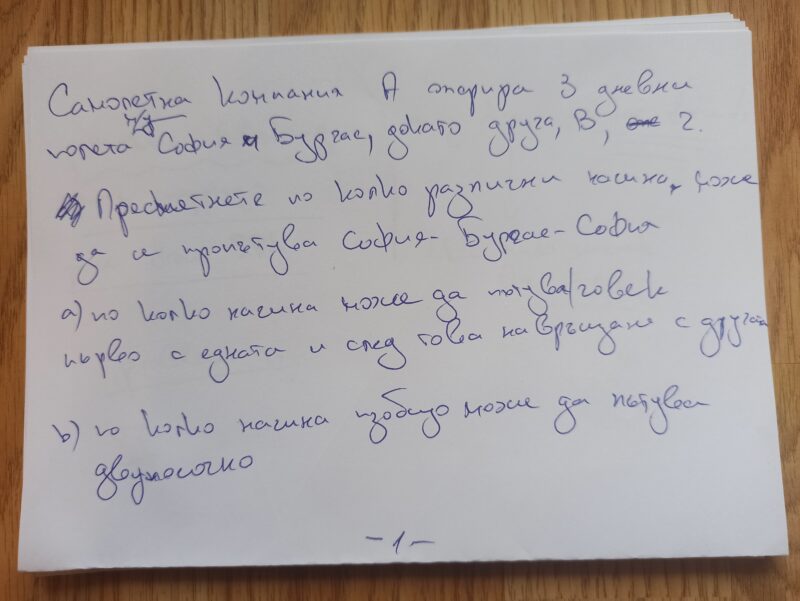 Самолетна компания А опарира 3 дневни
полета м/у София и Бургас, докато друга, В, 2.
Пресметнете по колко различни начина, може
да се пропътува София-Бургас-София
а) по колко начина може да пътува/човек
първо с едната и след това на връщане с другата
b) по колко начина изобщо може да пътува
двупосочно
-1-